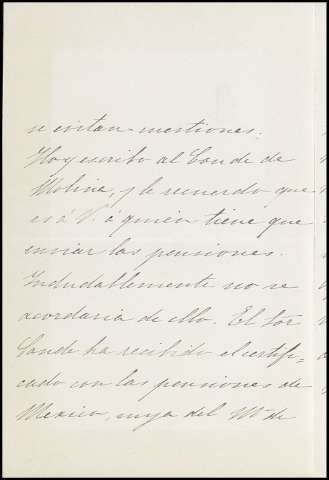 se evitan cuestiones.
Hoy escribo al Conde de
Molina, y le recuerdo que
es á V. á quien tiene que
enviar las pensiones.
Indudablemente no se
acordaria de ello. El Sor
Conde ha recibido el certifi=
cado con las pensiones de
Mexico, suya del Mº de